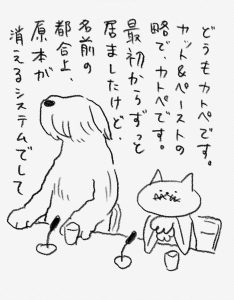 どうもカトペです。
カット&ペーストの
略で、カトペです。
最初からずっと
居ましたけど、
名前の
都合上、
原本が
消えるシステムでして